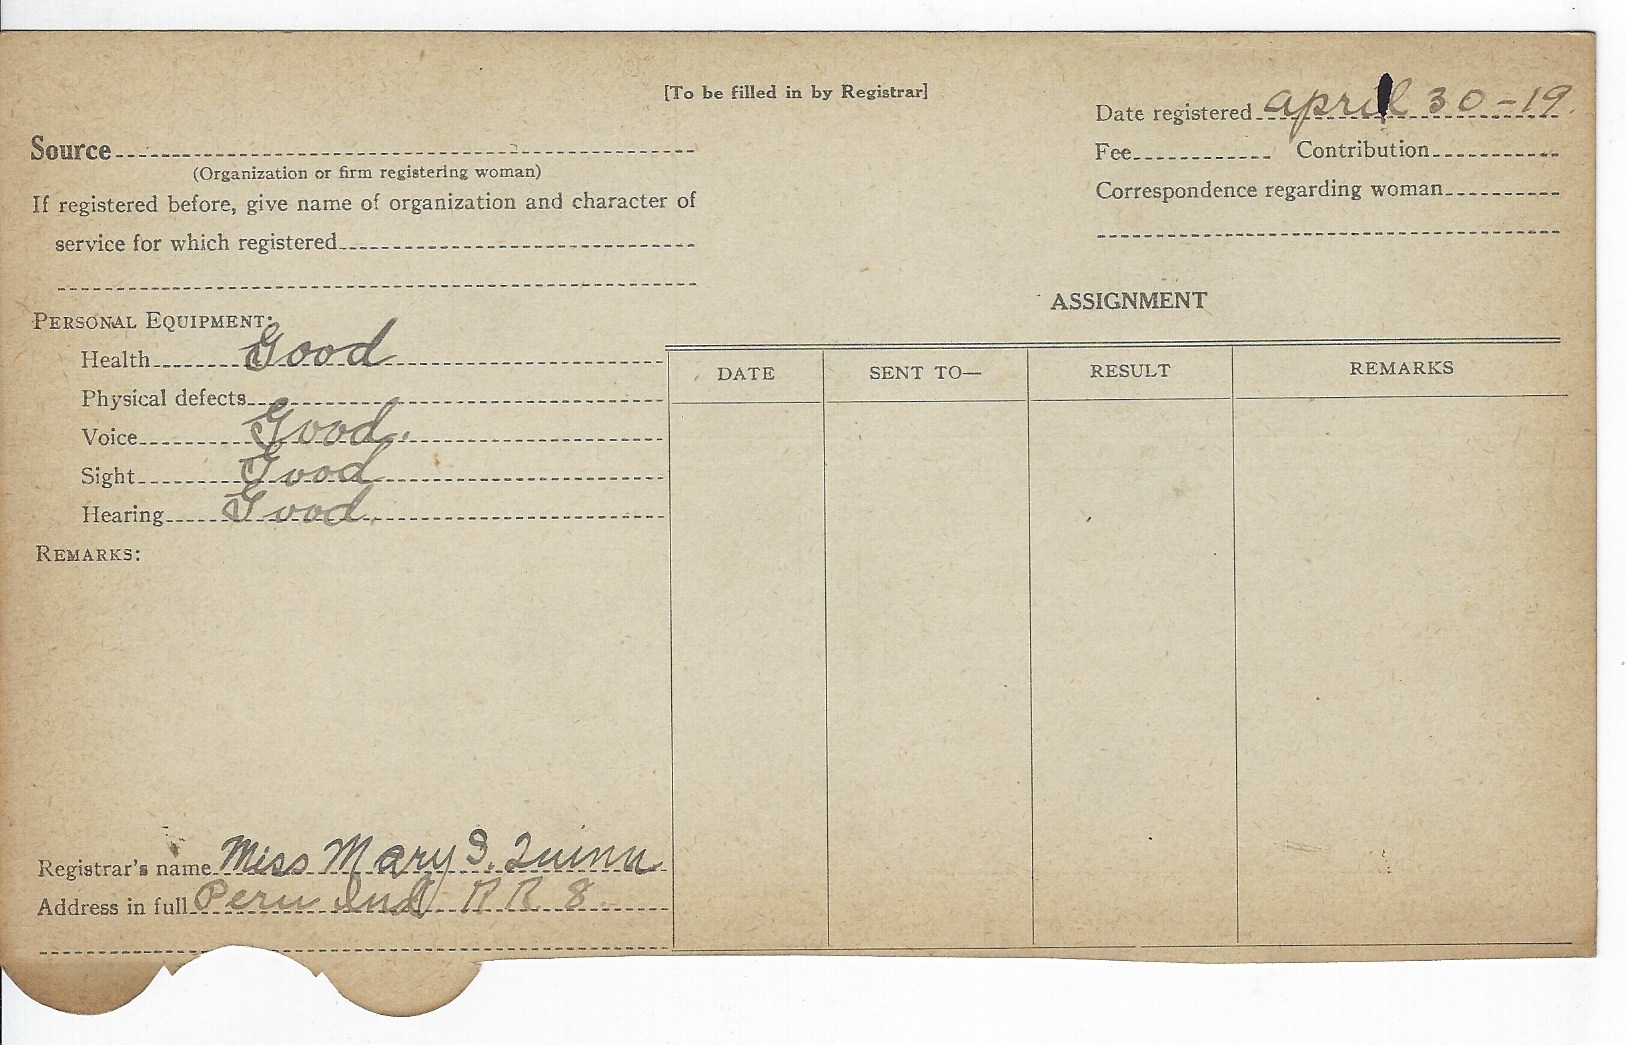 [To be filled in by Registrar]
Date registered april 30-19.
Source
Fee Contribution
(Organization or firm registering woman)
Correspondence regarding woman
If registered before, give name of organization and character of
service for which registered
ASSIGNMENT
PERSONAL EQUIPMENT:
Health Good
DATE SENT TO— RESULT REMARKS
Physical defects
Voice Good.
Sight Good
Hearing Good.
REMARKS:
Registrar's name Miss Mary S. Quinn
Address in full Peru Ind R R 8